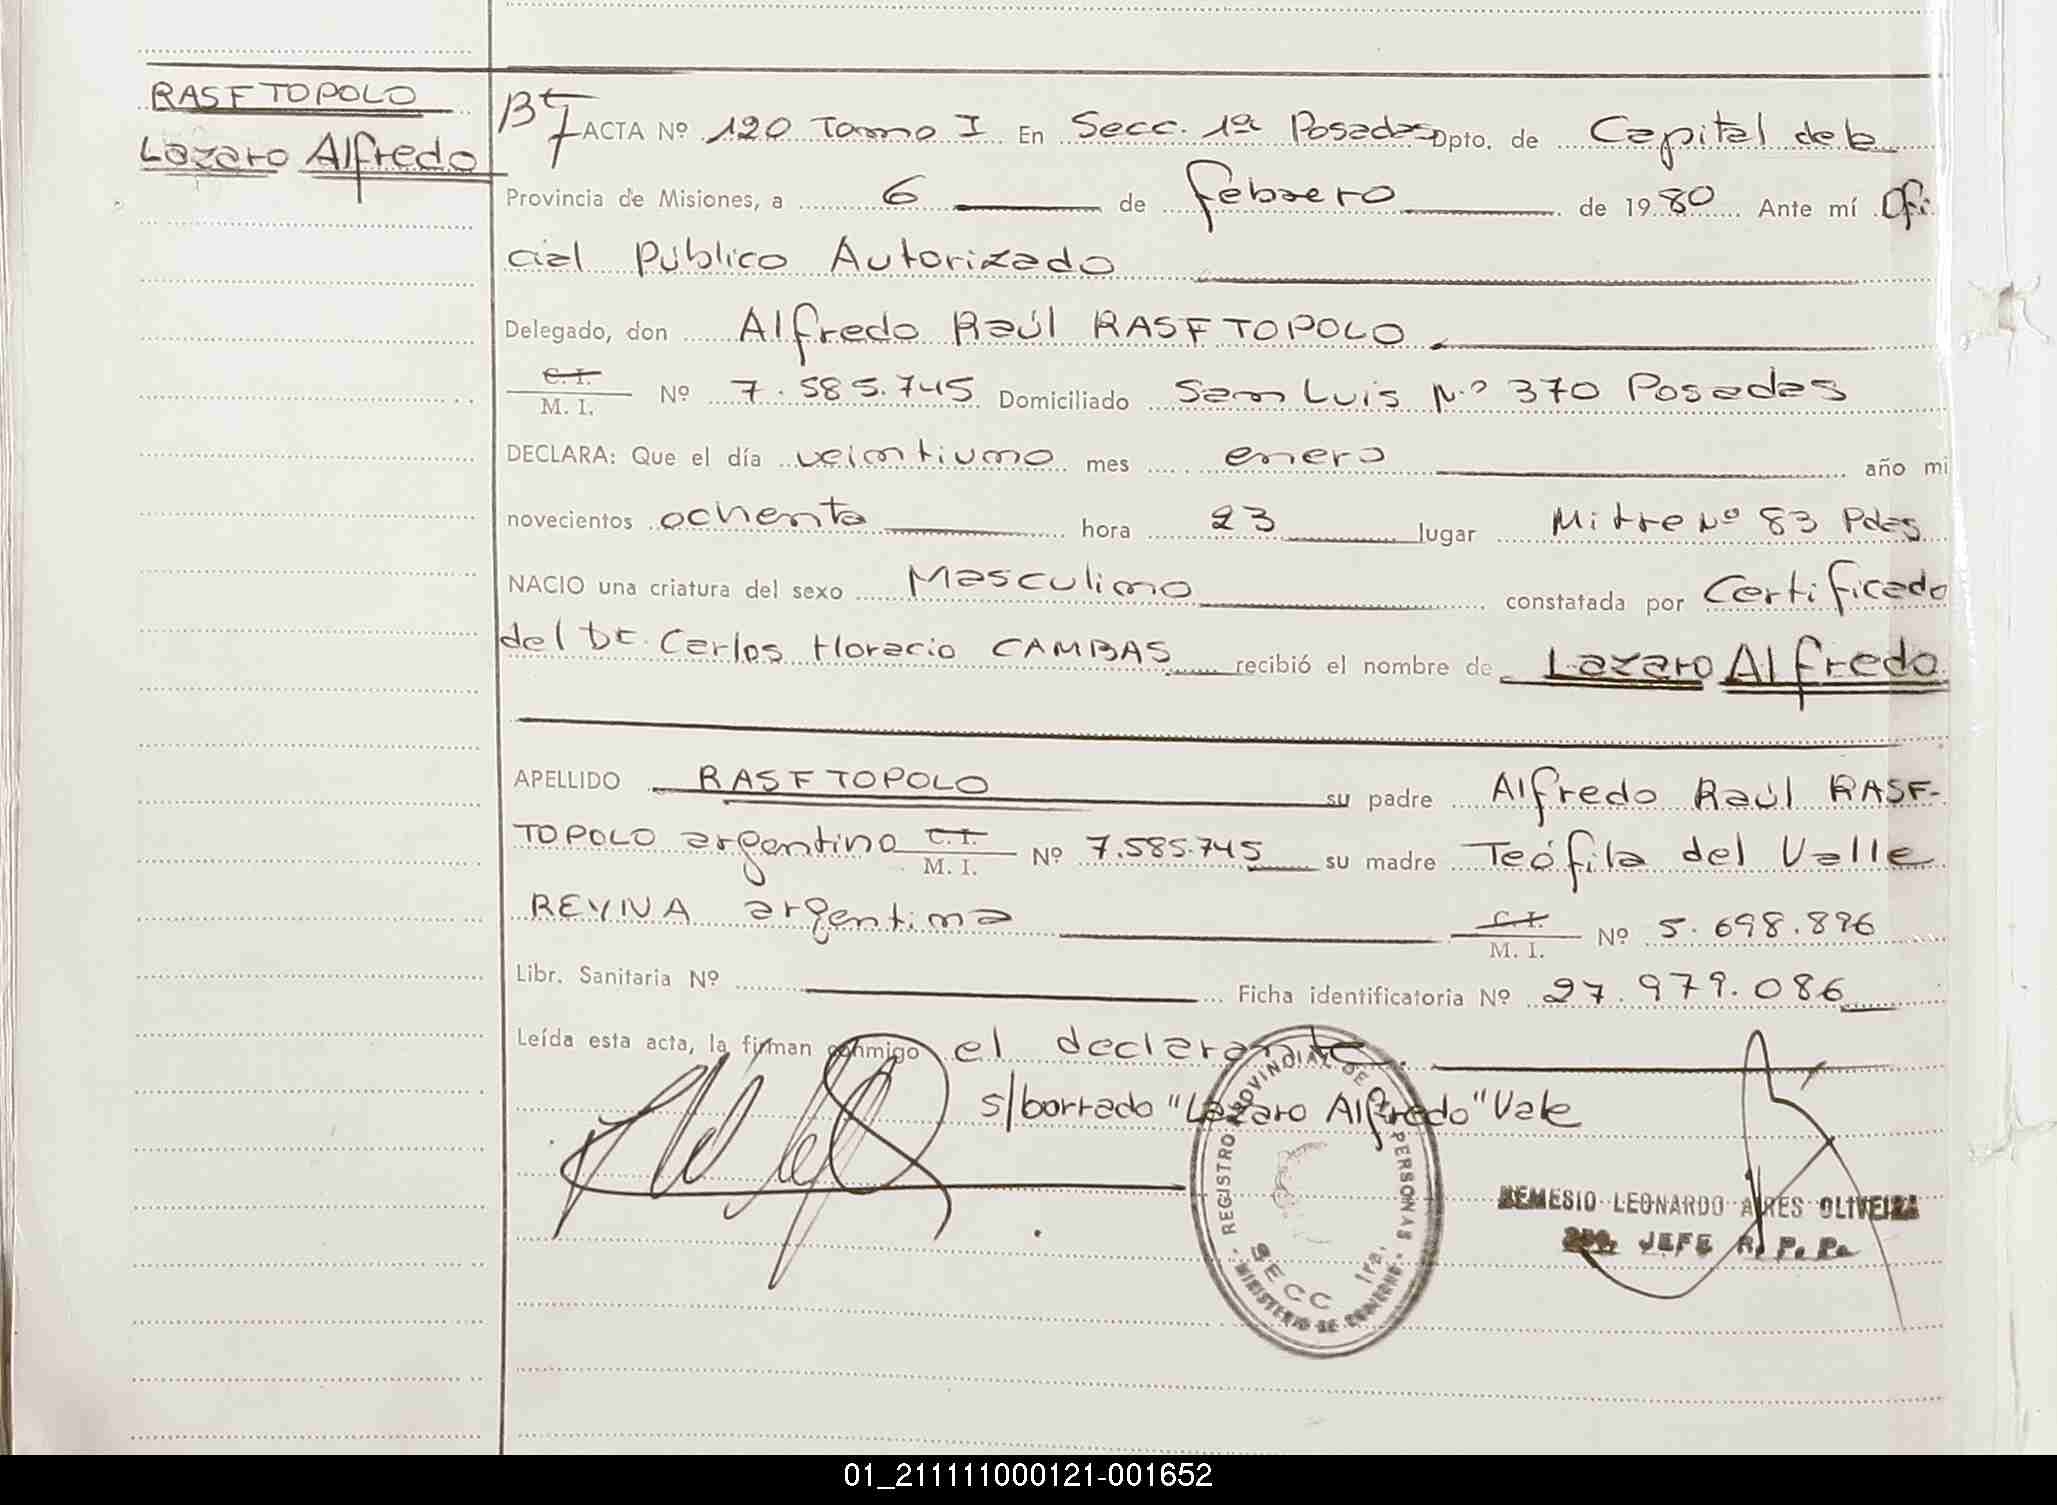 RASFTOPOLO
Lazaro Alfredo
ACTA Nº 120 Tomo I En Secc. 1ª Posadas Dpto. de Capital de la
Provincia de Misiones, a 6 de febrero de 1980 Ante mí Ofi
cial Público Autorizado
Delegado, don Alfredo Raúl RASFTOPOLO
C. I.
M. I. Nº 7.585.745 Domiciliado San Luis Nº 370 Posadas
DECLARA: Que el día veintiuno mes enero año mi
novecientos ochenta hora 23 lugar Mitre Nº 83 Pdas
NACIO una criatura del sexo Masculino constatada por Certificado
del Dr. Carlos Horacio CAMBAS recibió el nombre de Lazaro Alfredo
APELLIDO RASFTOPOLO su padre Alfredo Raúl RASF-
TOPOLO argentino C. I. M. I. Nº 7.585.745 su madre Teófila del Valle
argentina C. I. M. I. Nº 5.698.896
Libr. Sanitaria Nº Ficha identificatoria Nº 27.979.086
Leída esta acta, la firman conmigo el declarante.
s/borrado "Lazaro Alfredo" Vale
REGISTRO PROVINCIAL DE PERSONAS
SECC 1ra.
MINISTERIO DE GOBIERNO
NEMESIO LEONARDO AIRES OLIVEIRA
JEFE R. P. P.
01_211111000121-001652